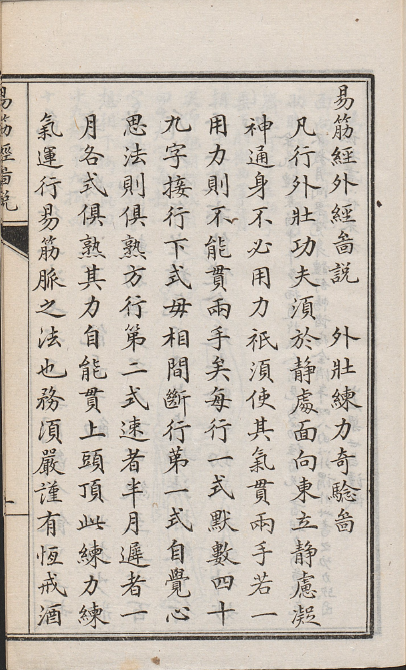 易筋經外經啚説　外壯練力奇驗啚
凡行外壯功夫須於静處面向東立静慮凝
神通身不必用力祇須使其氣貫兩手若一
用力則不能貫兩手矣每行一式默數四十
九字接行下式毋相間斷行第一式自覺心
思法則俱熟方行第二式速者半月遲者一
月各式俱熟其力自能貫上頭頂此練力練
氣運行易筋脈之法也務須嚴謹有恆戒酒
易筋經啚説